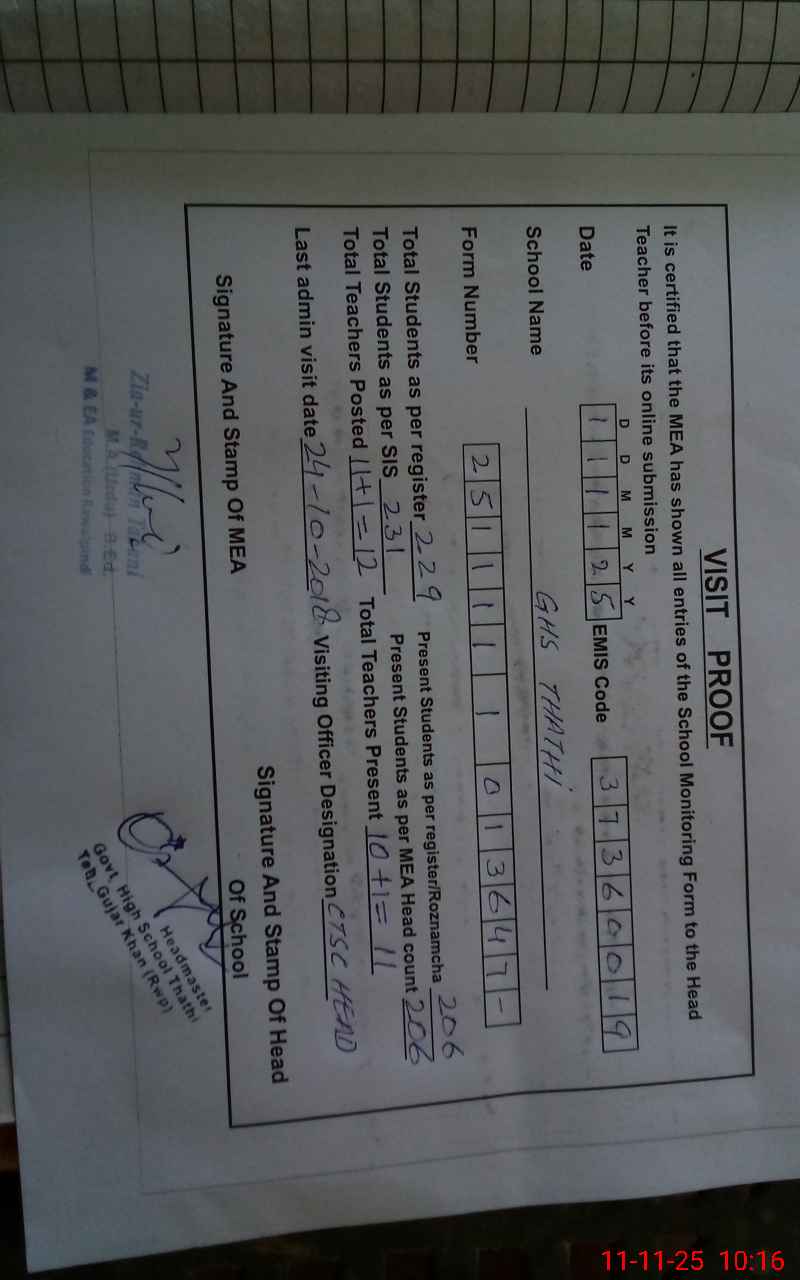 VISIT PROOF
It is certified that the MEA has shown all entries of the School Monitoring Form to the Head
Teacher before its online submission
D D M M Y Y
Date 1 1 1 1 2 5 EMIS Code 3 7 3 6 0 0 1 9
School Name GHS THATHI
Form Number 2 5 1 1 1 1 1 0 1 3 6 4 7 -
Total Students as per register 229 Present Students as per register/Roznamcha 206
Total Students as per SIS 231 Present Students as per MEA Head count 206
Total Teachers Posted 11+1=12 Total Teachers Present 10+1=11
Last admin visit date 24-10-2018 Visiting Officer Designation CTSC HEAD
Signature And Stamp Of MEA
Signature And Stamp Of Head
Of School
Zia-ur-Rehman
M.A (Urdu) B.Ed.
M & EA Education Rawalpindi
Headmaster
Govt. High School Thathi
Teh. Gujar Khan (Rwp)
11-11-25 10:16